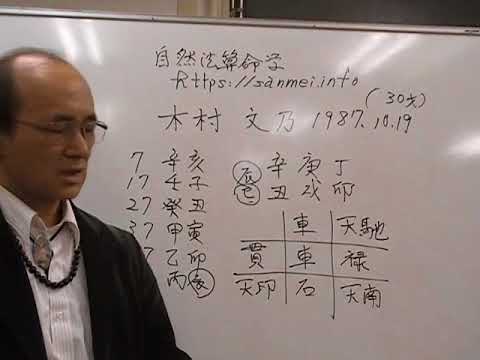 自然法算命学
https://sanmei.info
(30才)
木村 文乃 1987.10.19
7 辛亥 辰 辛庚丁
17 壬子 巳 丑戌卯
27 癸丑 車 天馳
37 甲寅 貫 車 禄
7 乙卯 天印 石 天南
丙辰